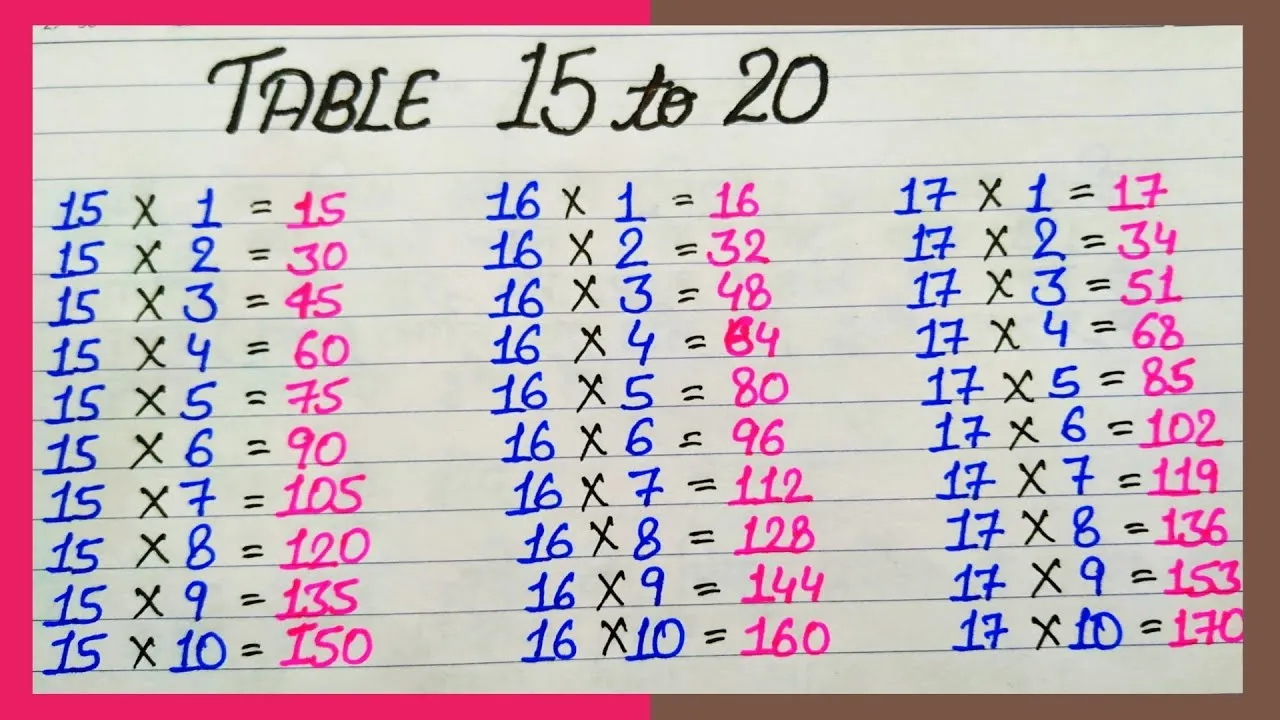 TABLE 15 to 20
15 X 1 = 15
15 X 2 = 30
15 X 3 = 45
15 X 4 = 60
15 X 5 = 75
15 X 6 = 90
15 X 7 = 105
15 X 8 = 120
15 X 9 = 135
15 X 10 = 150
16 X 1 = 16
16 X 2 = 32
16 X 3 = 48
16 X 4 = 64
16 X 5 = 80
16 X 6 = 96
16 X 7 = 112
16 X 8 = 128
16 X 9 = 144
16 X 10 = 160
17 X 1 = 17
17 X 2 = 34
17 X 3 = 51
17 X 4 = 68
17 X 5 = 85
17 X 6 = 102
17 X 7 = 119
17 X 8 = 136
17 X 9 = 153
17 X 10 = 170